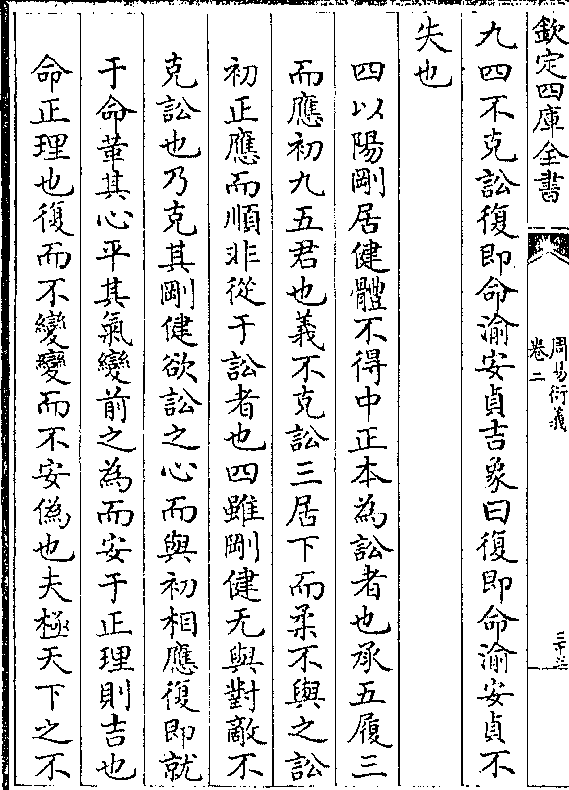 欽定四庫全書
周易衍義
卷二
三十三
九四不克訟復即命渝安貞吉象曰復即命渝安貞不
失也
四以陽剛居健體不得中正本為訟者也承五履三
而應初九五君也義不克訟三居下而柔不與之訟
初正應而順非從于訟者也四雖剛健无與對敵不
克訟也乃克其剛健欲訟之心而與初相應復即就
于命革其心平其氣變前之為而安于正理則吉也
命正理也復而不變變而不安偽也夫極天下之不